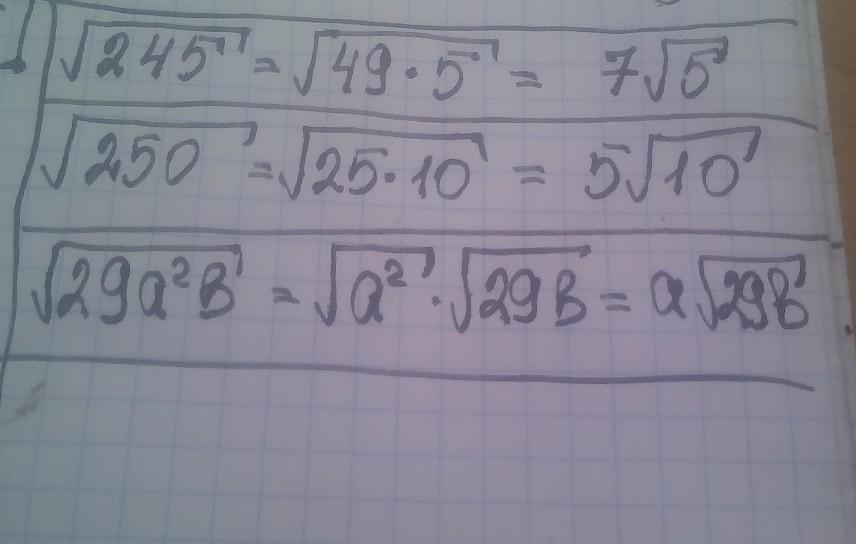 √245 = √49·5 = 7√5
√250 = √25·10 = 5√10
√29a²b = √a² · √29b = a√29b